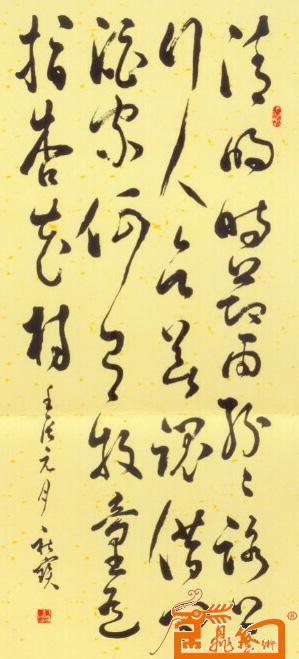 清明時節雨紛〻路上
行人欲断魂借问
酒家何处有牧童遥
指杏花村
壬辰元月
藝術
®